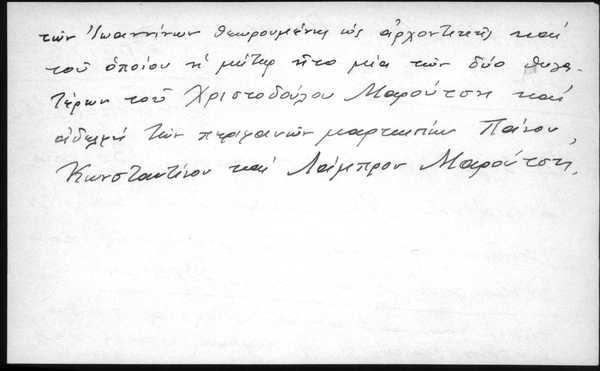 τῶν Ἰωαννίνων θεωρουμένης ὡς ἀρχοντικῆς καί
τοῦ ὁποίου ἡ μήτηρ ἦτο μία τῶν δύο θυγα-
τέρων τοῦ Χριστοδούλου Μαρούτση καί
ἀδελφή τῶν περιφανῶν μαρκησίων Πάνου,
Κωνσταντίνου καί Λάμπρου Μαρούτση.